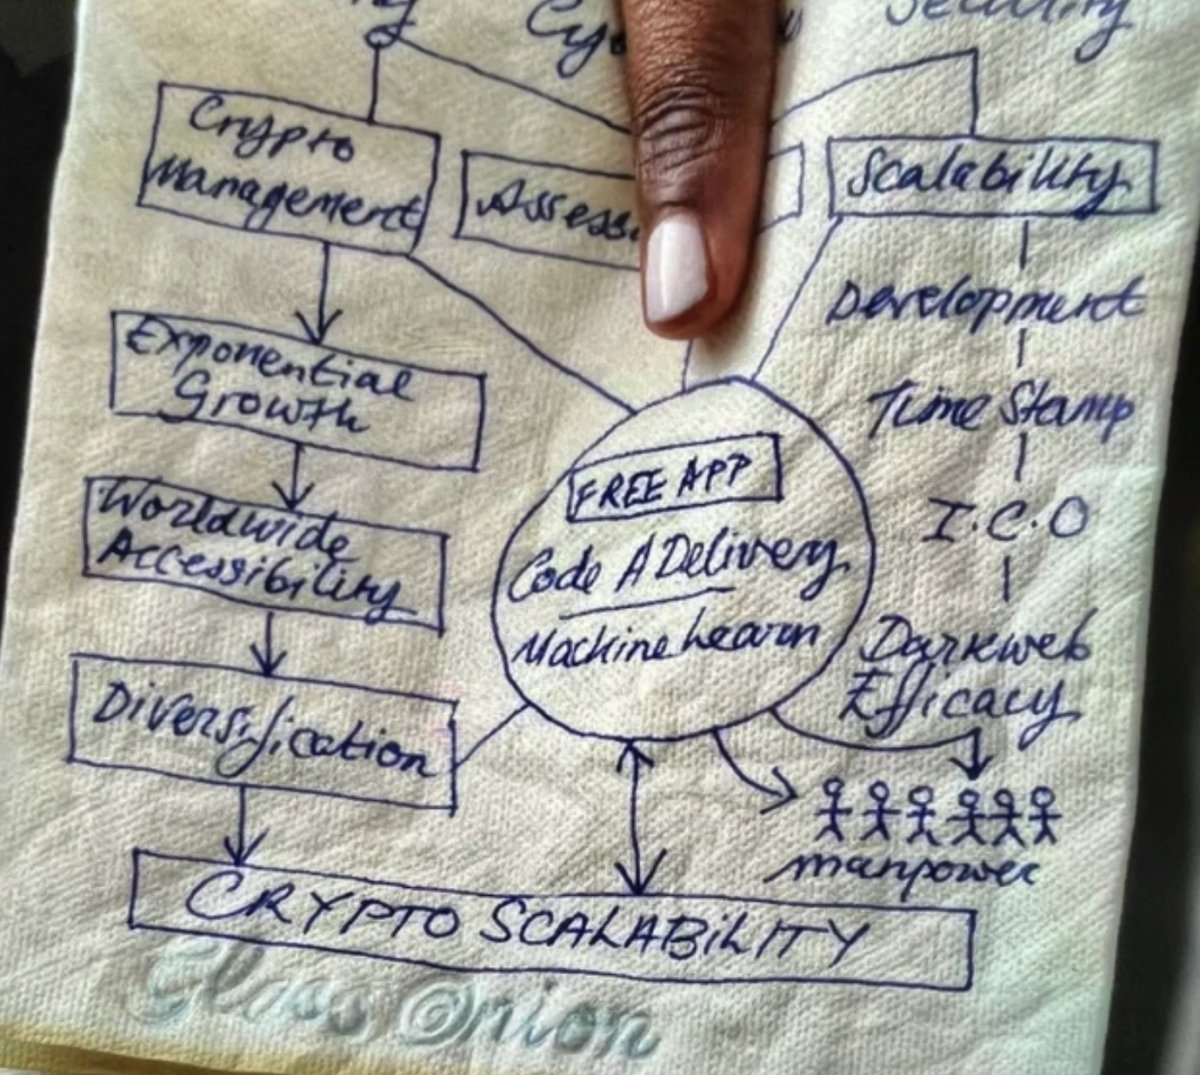 Security
Crypto
Management
Scalability
Development
Exponential
Growth
Time Stamp
FREE APP
Worldwide
Accessibility
I.C.O
Code A Delivery
Machine Learn
Darkweb
Efficacy
Diversification
manpower
CRYPTO SCALABILITY
Glass Onion